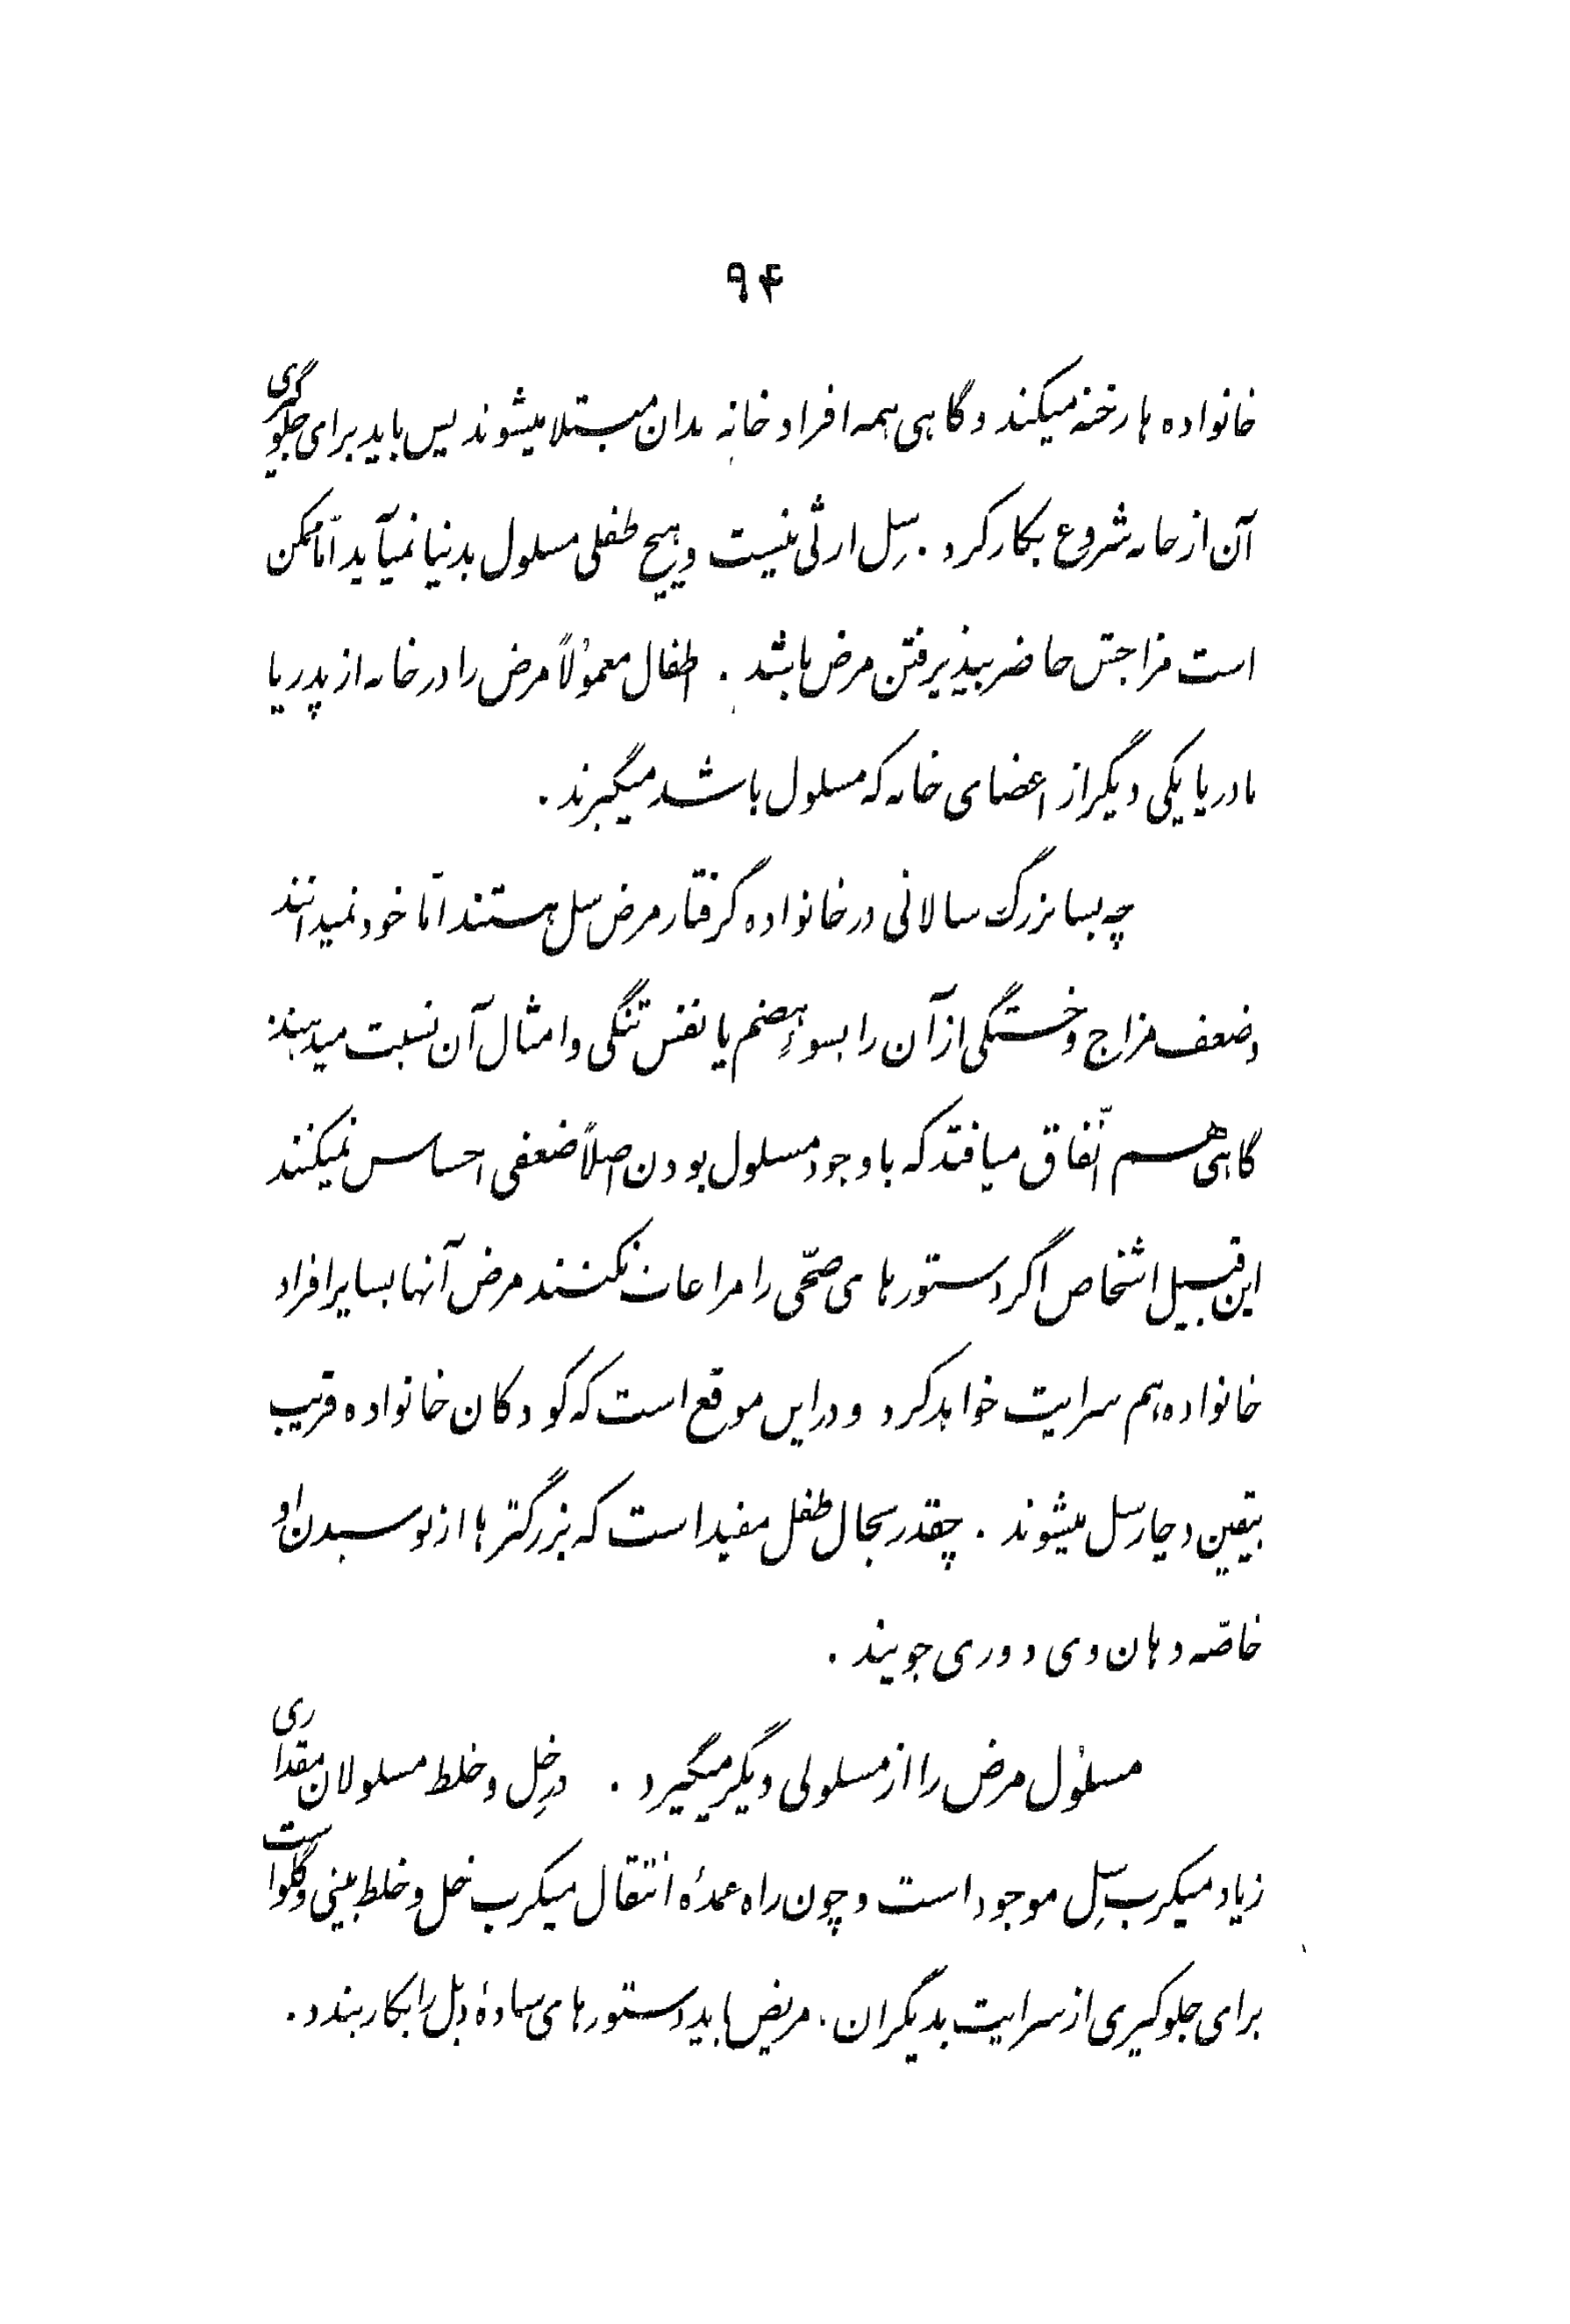 ۹۴
خانواده ها رخنه میکند و گاهی همه افراد خانه بدان مبتلا میشوند پس باید برای جلوگیری
آن از خانه شروع بکار کرد. سِل ارثی نیست و هیچ طفلی مسلول بدنیا نمیآید امّا ممکن
است مزاجش حاضر بپذیرفتن مرض باشد. اطفال معمولاً مرض را در خانه از پدر یا
مادر یا یکی دیگر از اعضای خانه که مسلول باشد میگیرند.
چه بسا بزرگ سالانی در خانواده گرفتار مرض سل هستند امّا خود نمیدانند
و ضعف مزاج و خستگی از آن را بسوءِ هضم یا نفس تنگی و امثال آن نسبت میدهند
گاهی هم اتّفاق میافتد که با وجود مسلول بودن اصلاً ضعفی احساس نمیکنند
این قبیل اشخاص اگر دستورهای صحّی را مراعات نکنند مرض آنها بسایر افراد
خانواده هم سرایت خواهد کرد و در این موقع است که کودکان خانواده قریب
بیقین دچار سل میشوند. چقدر بحال طفل مفید است که بزرگترها از بوسیدن او
خاصّه دهان وی دوری جویند.
مسلول مرض را از مسلولی دیگر میگیرد. در خِل و خلط مسلولان مقداری
زیاد میکرب سِل موجود است و چون راه عمدهٔ انتقال میکرب خل و خلط بینی و گلو است
برای جلوگیری از سرایت بدیگران، مریض باید دستورهای سادهٔ ذیل را بکار بندد.